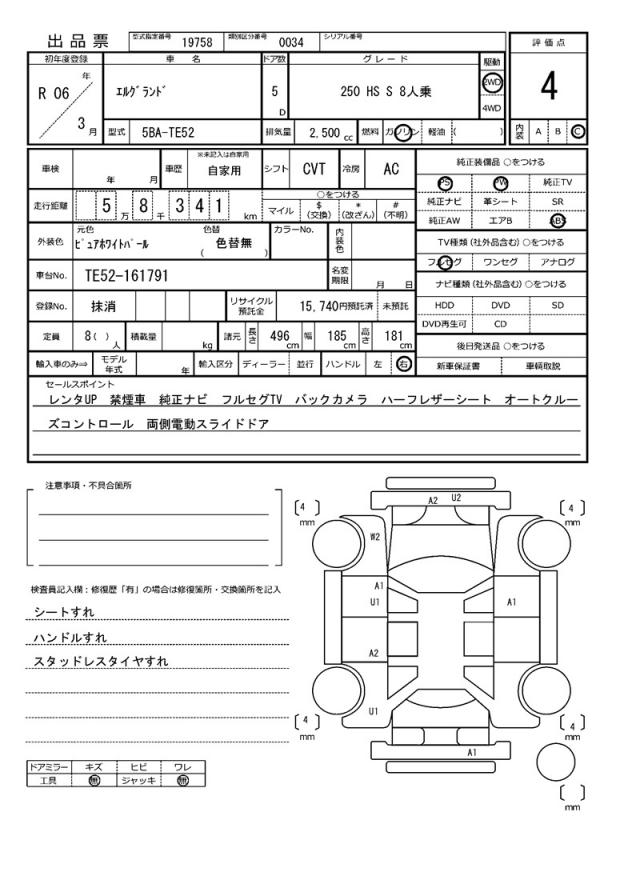 出品票
型式指定番号 19758 類別区分番号 0034 シリアル番号
評価点
4
内装 A B C
初年度登録 車名 ドア数 グレード 駆動
R 06 年 3 月
エルグランド 5 D 250 HS S 8人乗
2WD
4WD
型式 5BA-TE52 排気量 2,500 cc 燃料 ガソリン 軽油 ( )
車検 年 月 車歴 ※未記入は自家用 自家用 シフト CVT 冷房 AC
走行距離 5 万 8 千 3 4 1 km
○をつける
マイル $ (交換) * (改ざん) # (不明)
外装色 元色 ピュアホワイトパール 色替 ( 色替無 ) カラーNo. 内装色
車台No. TE52-161791 名変期限 月 日
登録No. 抹消 リサイクル預託金 15,740円預託済 未預託
定員 8( ) 人 積載量 kg 諸元 長さ 496 cm 幅 185 cm 高さ 181 cm
輸入車のみ⇒ モデル年式 年 輸入区分 ディーラー 並行 ハンドル 左 右
純正装備品 ○をつける
PS PW 純正TV
純正ナビ 革シート SR
純正AW エアB ABS
TV種類 (社外品含む) ○をつける
フルセグ ワンセグ アナログ
ナビ種類 (社外品含む) ○をつける
HDD DVD SD
DVD再生可 CD
後日発送品 ○をつける
新車保証書 車輌取説
セールスポイント
レンタUP 禁煙車 純正ナビ フルセグTV バックカメラ ハーフレザーシート オートクルー
ズコントロール 両側電動スライドドア
注意事項・不具合箇所
検査員記入欄：修復歴「有」の場合は修復箇所・交換箇所を記入
シートすれ
ハンドルすれ
スタッドレスタイヤすれ
ドアミラー キズ ヒビ ワレ
工具 無 ジャッキ 無
A2 U2
4 mm
4 mm
W2
A1
U1
A1
A2
U1
4 mm
4 mm
A1
mm